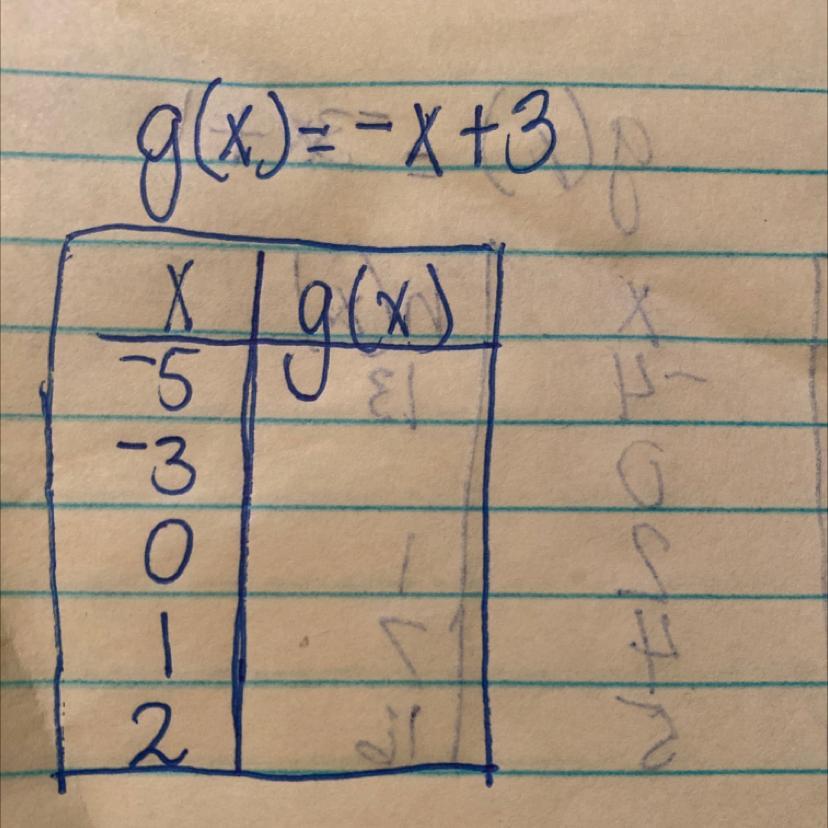 g(x)=-x+3
x g(x)
-5
-3
0
1
2